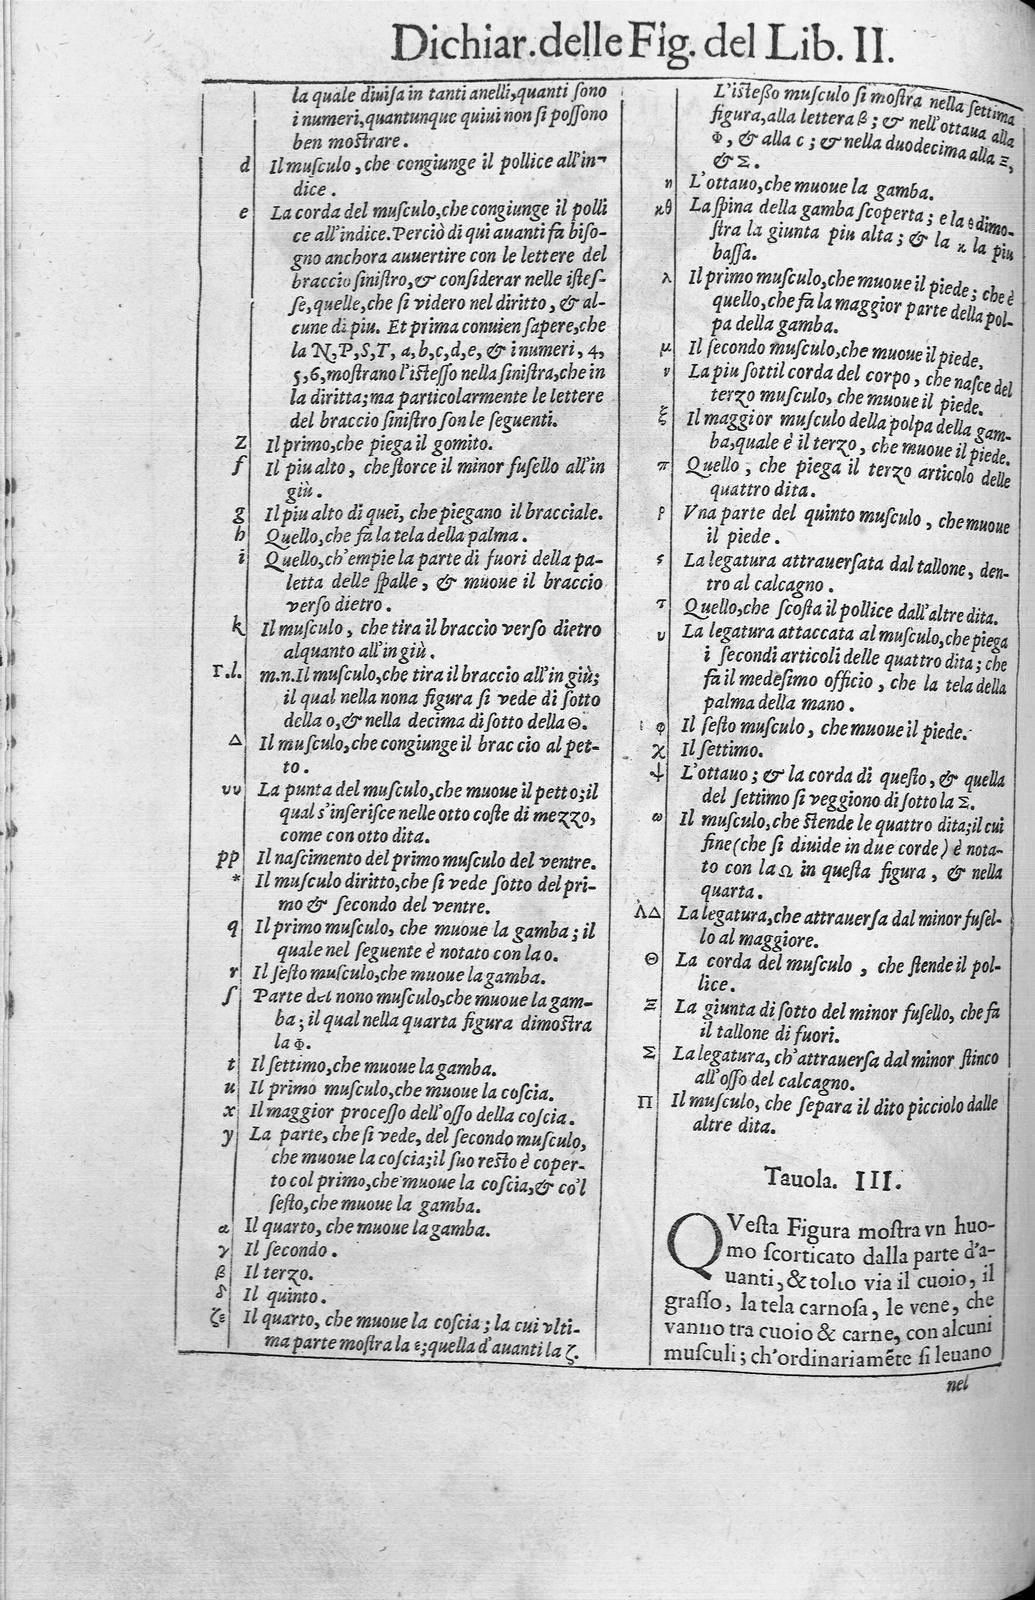 Dichiar. delle Fig. del Lib. II.
la quale diuiſa in tanti anelli, quanti ſono
i numeri, quantunque quiui non ſi poſſono
ben moſtrare.
d Il muſculo, che congiunge il pollice all'in¬
dice.
e La corda del muſculo, che congiunge il polli
ce all'indice. Perciò di qui auanti fà biſo-
gno anchora auuertire con le lettere del
braccio ſiniſtro, & conſiderar nelle iſteſ-
ſe, quelle, che ſi videro nel diritto, & al-
cune di piu. Et prima conuien ſapere, che
la N, P, S, T, a, b, c, d, e, & i numeri, 4,
5, 6, moſtrano l'iſteſſo nella ſiniſtra, che in
la diritta; ma particolarmente le lettere
del braccio ſiniſtro ſon le ſeguenti.
Z Il primo, che piega il gomito.
f Il piu alto, che ſtorce il minor fuſello all'in
giù.
g Il piu alto di quei, che piegano il bracciale.
h Quello, che fà la tela della palma.
i Quello, ch'empie la parte di fuori della pa-
letta delle ſpalle, & muoue il braccio
verſo dietro.
k Il muſculo, che tira il braccio verſo dietro
alquanto all'in giù.
Γ.l. m.n. Il muſculo, che tira il braccio all'in giù;
il qual nella nona figura ſi vede di ſotto
della o, & nella decima di ſotto della Θ.
Δ Il muſculo, che congiunge il braccio al pet-
to.
νν La punta del muſculo, che muoue il petto; il
qual s'inſeriſce nelle otto coſte di mezzo,
come con otto dita.
pp Il naſcimento del primo muſculo del ventre.
* Il muſculo diritto, che ſi vede ſotto del pri-
mo & ſecondo del ventre.
q Il primo muſculo, che muoue la gamba; il
quale nel ſeguente è notato con la o.
r Il ſeſto muſculo, che muoue la gamba.
ſ Parte del nono muſculo, che muoue la gam-
ba; il qual nella quarta figura dimoſtra
la Φ.
t Il ſettimo, che muoue la gamba.
u Il primo muſculo, che muoue la coſcia.
x Il maggior proceſſo dell'oſſo della coſcia.
y La parte, che ſi vede, del ſecondo muſculo,
che muoue la coſcia; il ſuo reſto è coper-
to col primo, che muoue la coſcia, & co'l
ſeſto, che muoue la gamba.
α Il quarto, che muoue la gamba.
γ Il ſecondo.
β Il terzo.
δ Il quinto.
ζε Il quarto, che muoue la coſcia; la cui vlti-
ma parte moſtra la ε; quella d'auanti la ζ.
L'iſteßo muſculo ſi moſtra nella ſettima
figura, alla lettera β; & nell'ottaua alla
Φ, & alla c; & nella duodecima alla Ξ,
& Σ.
η L'ottauo, che muoue la gamba.
κθ La ſpina della gamba ſcoperta; e la θ dimo-
ſtra la giunta piu alta; & la κ la piu
baſſa.
λ Il primo muſculo, che muoue il piede; che è
quello, che fà la maggior parte della pol-
pa della gamba.
μ Il ſecondo muſculo, che muoue il piede.
ν La piu ſottil corda del corpo, che naſce del
terzo muſculo, che muoue il piede.
ξ Il maggior muſculo della polpa della gam-
ba, quale è il terzo, che muoue il piede.
π Quello, che piega il terzo articolo delle
quattro dita.
ρ Vna parte del quinto muſculo, che muoue
il piede.
ς La legatura attrauerſata dal tallone, den-
tro al calcagno.
τ Quello, che ſcoſta il pollice dall'altre dita.
υ La legatura attaccata al muſculo, che piega
i ſecondi articoli delle quattro dita; che
fà il medeſimo officio, che la tela della
palma della mano.
φ Il ſeſto muſculo, che muoue il piede.
χ Il ſettimo.
ψ L'ottauo; & la corda di queſto, & quella
del ſettimo ſi veggiono di ſotto la Σ.
ω Il muſculo, che ſtende le quattro dita; il cui
fine (che ſi diuide in due corde) è nota-
to con la Ω in queſta figura, & nella
quarta.
ΛΔ La legatura, che attrauerſa dal minor fuſel-
lo al maggiore.
Θ La corda del muſculo, che ſtende il pol-
lice.
Ξ La giunta di ſotto del minor fuſello, che fà
il tallone di fuori.
Σ La legatura, ch'attrauerſa dal minor ſtinco
all'oſſo del calcagno.
Π Il muſculo, che ſepara il dito picciolo dalle
altre dita.
Tauola. III.
QVeſta Figura moſtra vn huo-
mo ſcorticato dalla parte d'a-
uanti, & tolto via il cuoio, il
graſſo, la tela carnoſa, le vene, che
vanno tra cuoio & carne, con alcuni
muſculi; ch'ordinariamẽte ſi leuano
nel